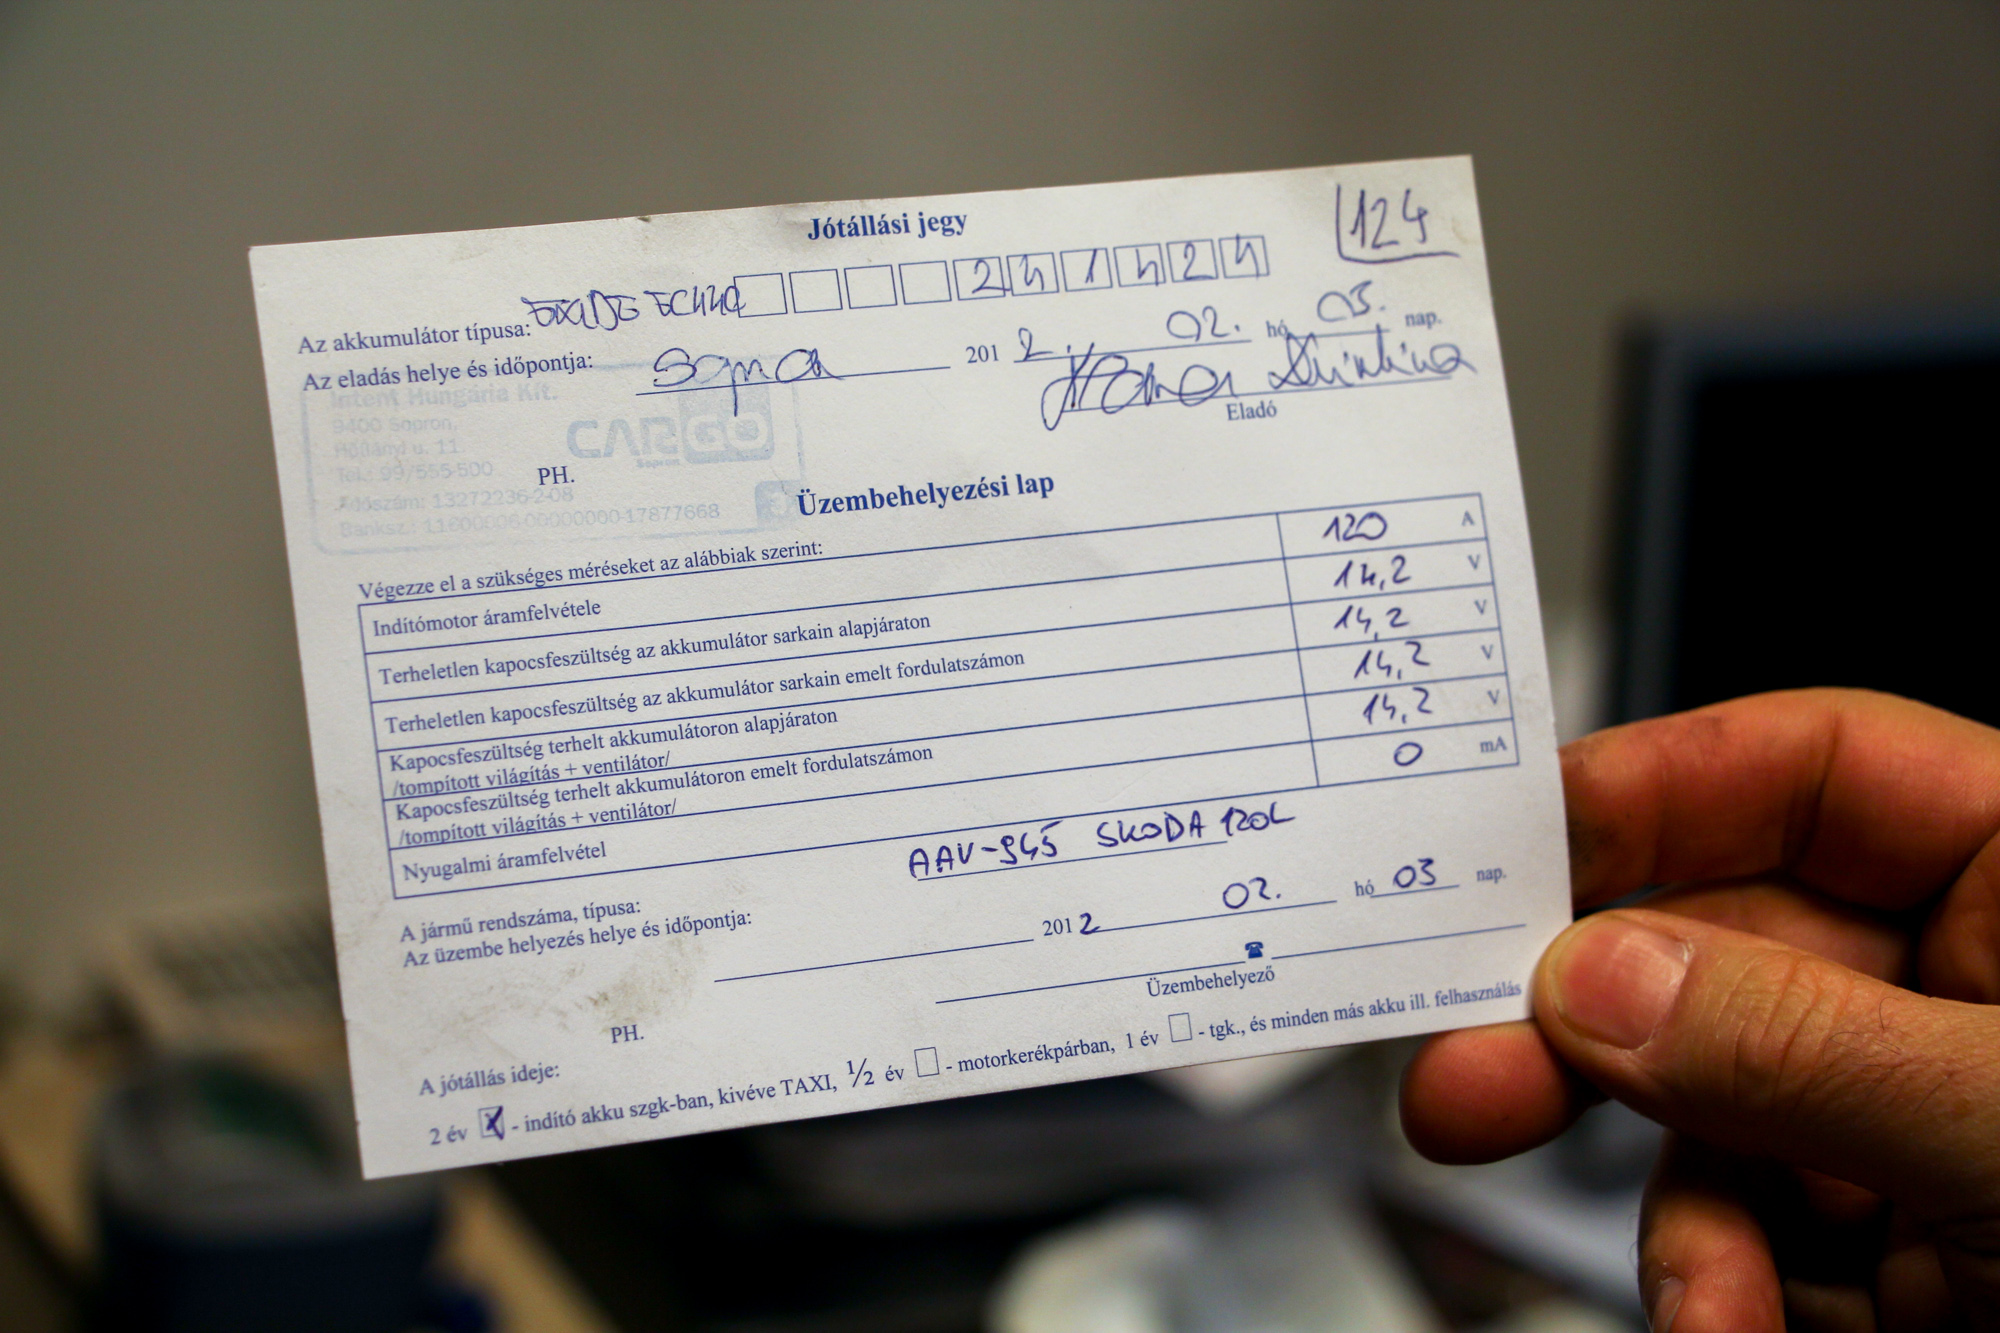 Jótállási jegy
124
Az akkumulátor típusa: EXIDE EC440 241424
Az eladás helye és időpontja: Sopron 2012. 02. hó 03. nap.
Eladó
Intent Hungária Kft.
9400 Sopron,
u. 11.
Tel.: 99/555-500
Adószám: 13272236-2-08
Banksz.: 11600006-00000000-17877668
CARGO
Sopron
PH.
Üzembehelyezési lap
Végezze el a szükséges méréseket az alábbiak szerint:
Indítómotor áramfelvétele 120 A
Terheletlen kapocsfeszültség az akkumulátor sarkain alapjáraton 14,2 V
Terheletlen kapocsfeszültség az akkumulátor sarkain emelt fordulatszámon 14,2 V
Kapocsfeszültség terhelt akkumulátoron alapjáraton 14,2 V
/tompított világítás + ventilátor/
Kapocsfeszültség terhelt akkumulátoron emelt fordulatszámon 14,2 V
/tompított világítás + ventilátor/
Nyugalmi áramfelvétel 0 mA
A jármű rendszáma, típusa: AAV-945 SKODA 120L
Az üzembe helyezés helye és időpontja: 2012 02. hó 03 nap.
☎
Üzembehelyező
PH.
A jótállás ideje:
2 év X - indító akku szgk-ban, kivéve TAXI, 1/2 év - motorkerékpárban, 1 év - tgk., és minden más akku ill. felhasználás